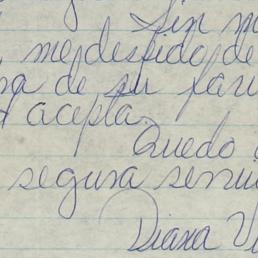 Sin m
, me despido de
na de su fari
acepta.
Quedo
segura servi
Diana Vi